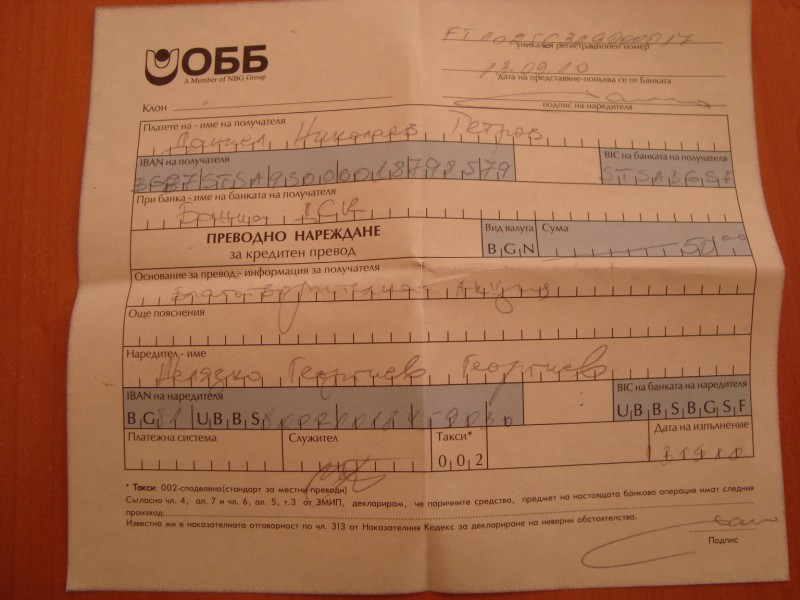 ОББ
A Member of NBG Group
уникален регистрационен номер
13.09.10
дата на представяне-попълва се от Банката
Клон
подпис на наредителя
Платете на - име на получателя
Даниел Николаев Петров
IBAN на получателя
BIC на банката на получателя
STSA93000018798579
STSABGSF
При банка - име на банката на получателя
Банка ДСК
ПРЕВОДНО НАРЕЖДАНЕ
за кредитен превод
Вид валута
Сума
BGN
50
Основание за превод - информация за получателя
Благотворителна Акция
Още пояснения
Наредител - име
Желязко Георгиев Георгиев
IBAN на наредителя
BIC на банката на наредителя
BG UBBS
UBBSBGSF
Платежна система
Служител
Такси*
Дата на изпълнение
002
* Такси: 002-споделено(стандарт за местни преводи)
Съгласно чл. 4, ал. 7 и чл. 6, ал. 5, т.3 от ЗМИП, декларирам, че паричните средства, предмет на настоящата банкова операция имат следния
произход:
Известна ми е наказателната отговорност по чл. 313 от Наказателния Кодекс за деклариране на неверни обстоятелства.
Подпис